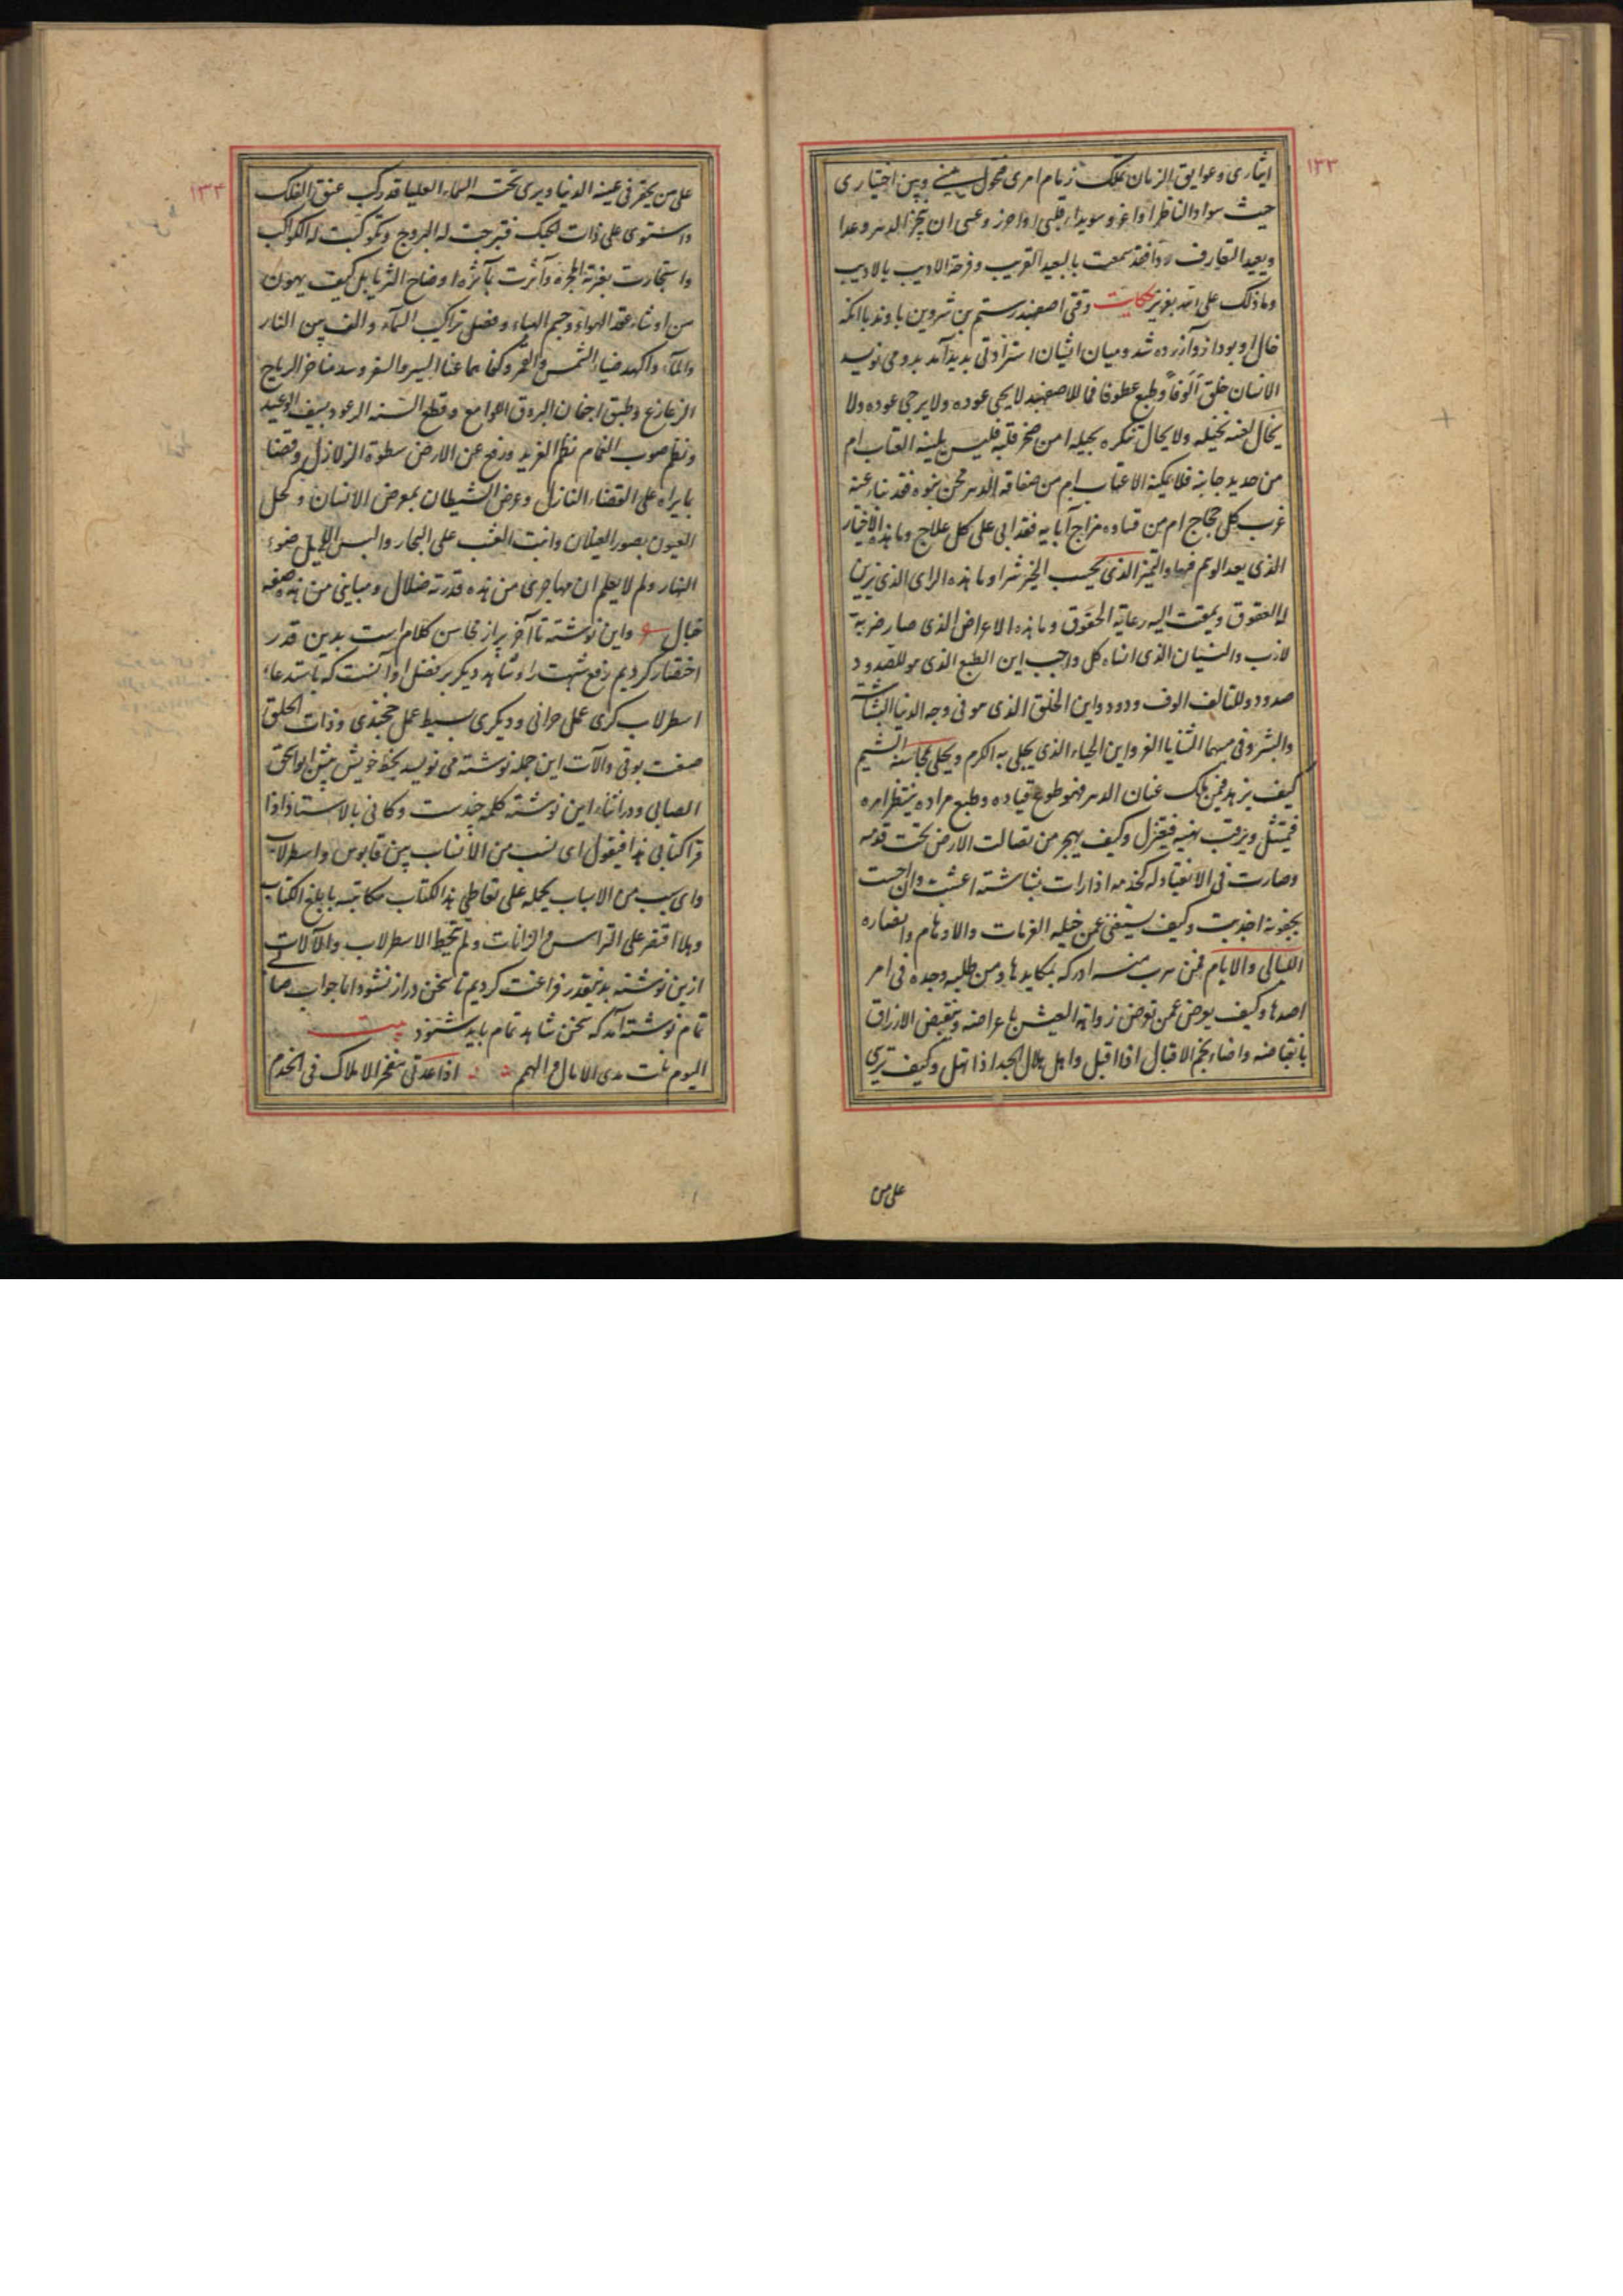 ۱۳۳
ایثاری وعوایق الزمان تملک زمام امری فتحول بینی وبین اختیاری
حیث سواد الناظر اذا غر وسویداء قلبی اذا حزر وعسی ان ینجز الدهر وعدا
ویعید التعارف ودا فقد سمعت بالبعید القریب وفرحة الادیب بالادیب
وما ذلک علی الله بعزیز حکایت وقتی اصفهبد رستم بن شروین باوند با انکه
خال او بود ازو آزرده شد ومیان ایشان استزادتی بدید آمد بدو می نویسد
الانسان خلق الوفا وطبع عطوفا فما للاصفهبد لا یحی عوده ولا یرجی عوده ولا
یخال لفیئه مخیله ولا یحال تنکره بحیله امن صخر قلبه فلیس یلینه العتاب ام
من حدید جانبه فلا یمکنه الاعتاب ام من صفاقة الدهر مجن نبوه فقد نبا عنه
غرب کل حجاج ام من قساوه مزاج آبایه فقد ابی علی کل علاج وما هذه الاختیار
الذی یعد الوهم فهما والتمیز الذی یحسب الخیر شرا وما هذه الرای الذی یزین
له العقوق ویمقت الیه رعایة الحقوق وما هذه الاعراض الذی صار ضربة
لازب والنسیان الذی انساه کل واجب این الطبع الذی هو للصدود
صدود وللتالف الوف ودود واین الخلق الذی هو فی وجه الدنیا البشاشة
والبشر وفی مبسمها الثنایا الغر واین الحیاء الذی یجلی به الکرم ویحلی بمحاسنه الشیم
کیف یزهد فیمن ملک عنان الدهر فهو طوع قیاده وطبع مراده ینتظر امره
فیمتثل ویرقب نهیه فیعتزل وکیف یهجر من تضالت الارض تحت قدمه
وصارت فی الانقیاد له کخدمه اذا رات بشاشته اعشبت وان احست
بجفوته اجدبت وکیف یستغنی عمن خیله العزمات والاوهام وانصاره
اللیالی والایام فمن هرب منه ادرکه بمکایدها ومن طلبه وجده فی امر
اصدها وکیف یعرض عمن تعرض رفاهة العیش باعراضه وینقبض الارزاق
بانقباضه واضاء نجم الاقبال اذا اقبل واهل هلال المجد اذا تهلل وکیف تری
علی من
۱۳۴
علی من یحقر فی عینه الدنیا ویری تحته السماء العلیا قد رکب عنق الفلک
واستوی علی ذات الحبک فتبرجت له البروج وتکوکبت له الکواکب
واستجارت بعزته المجره وآثرت بمآثره اوضاح الثریا بل کیف یهون
من لو شاء عقد الهواء وجسم الهباء وفصل تراکیب السماء والف بین النار
والماء واکمد ضیاء الشمس والقمر وکفاهما عنا السیر والسفر وسد مناخر الریاح
الزعازع وطبق اجفان البروق اللوامع وقطع السنة الرعود بسیف الوعید
ونظم صوب الغمام نظم الفرید ورفع عن الارض سطوة الزلازل وقضا
بما یراه علی القضاء النازل وعرض الشیطان بمعرض الانسان وکحل
العیون بصور الغیلان وانبت العشب علی البحار والبس اللیل ضوء
النهار ولم لا یعلم ان مهاجری من هذه قدرته ضلال ومباینی من هذه صفته
خبال واین نوشته تا آخر پر از محاسن کلام است بدین قدر
اختصار کردیم رفع شبهت را وشاهد دیکر بر فضل او آنست که باستدعاء
اسطرلاب کری عمل حرانی ودیکری بسیط عمل خجندی وذات الحلق
صنعت بوقی وآلات این جمله نوشته می نویسد بخط خویش پیش ابو اسحق
الصابی ودر اثناء این نوشته کلمه چندست وکانی بالاستاذ اذا
قرا کتابی هذا فیقول ای نسب من الانساب بین قابوس واسطرلاب
وای سبب من الاسباب یحمله علی تعاطی هذا الکتاب مکاتبه بابلغ الکتاب
وهلا اقتصر علی التراس والزانات ولم یتخط الاسطرلاب والآلات
ازین نوشته بدینقدر فراعت کردیم تا سخن دراز نشود اما جواب صابی
تمام نوشته آمد که سخن شاهد تمام باید شنود بیت
الیوم نلت مدی الامال والهمم اذا عدتی مفخر الاملاک فی الخدم